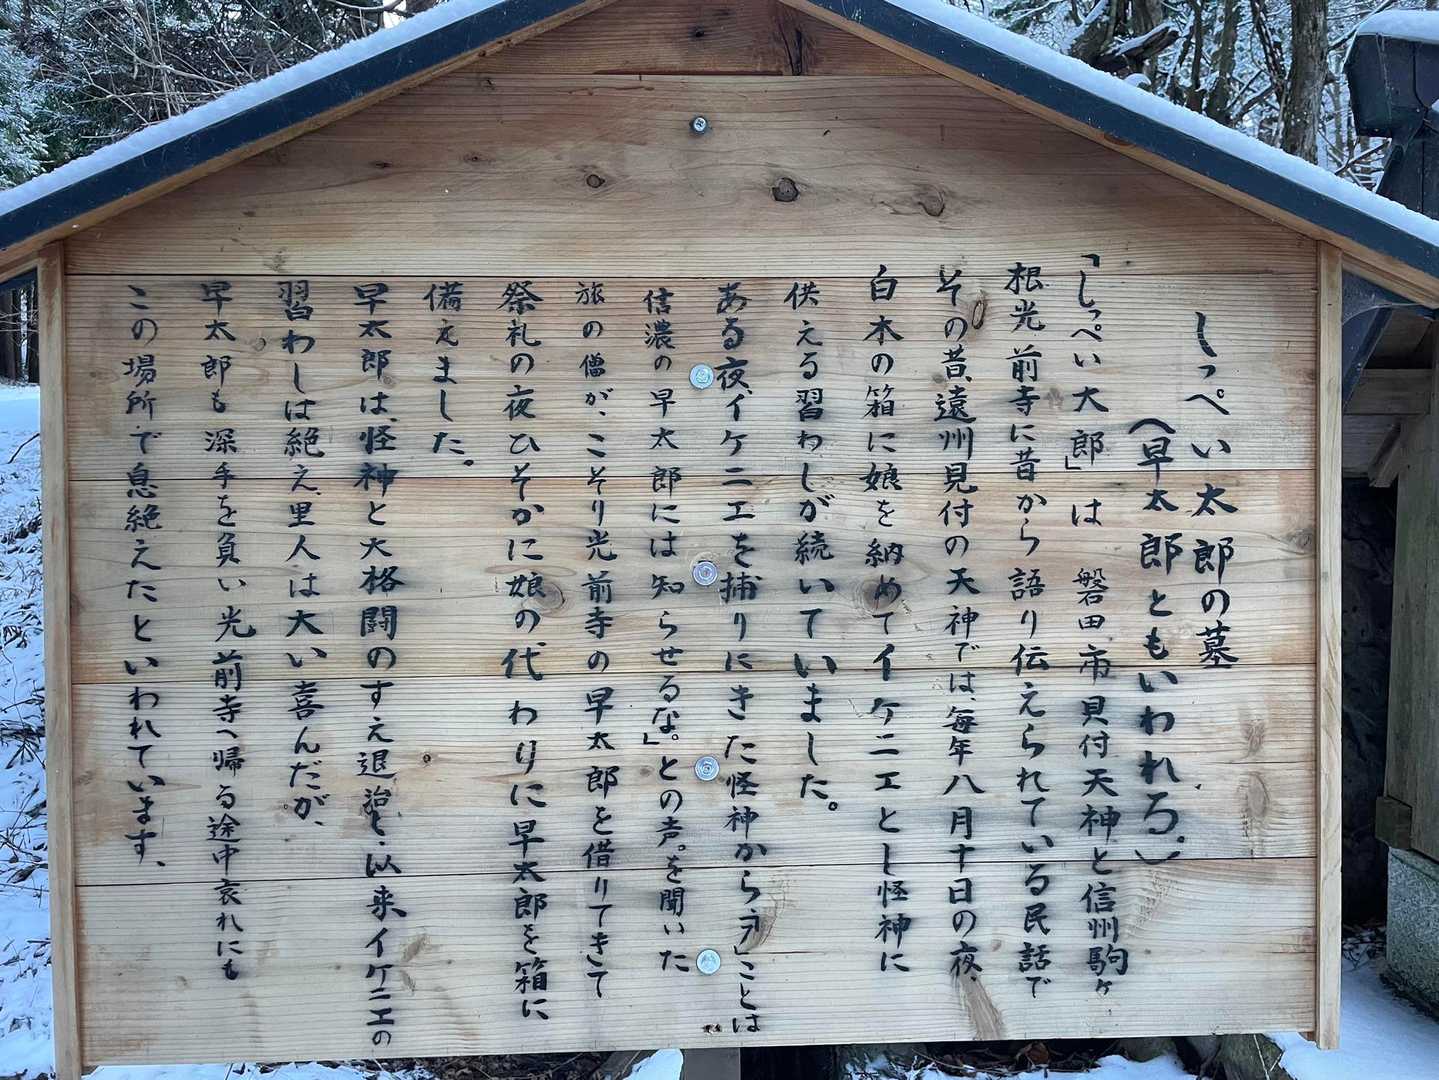 しっぺい太郎の墓
(早太郎ともいわれる。)
「しっぺい大郎」は 磐田市見付天神と信州駒ヶ
根光前寺に昔から語り伝えられている民話で
その昔、遠州見付の天神では、毎年八月十日の夜、
白木の箱に娘を納めてイケニエとし怪神に
供える習わしが続いていました。
ある夜、イケニエを捕りにきた怪神から「ことは
信濃の早太郎には知らせるな。」との声。を聞いた
旅の僧が、こそり光前寺の早太郎を借りてきて
祭礼の夜ひそかに娘の代わりに早太郎を箱に
備えました。
早太郎は、怪神と大格闘のすえ退治し、以来、イケニエの
習わしは絶え、里人は大い喜んだが、
早太郎も深手を負い光前寺へ帰る途中哀れにも
この場所で息絶えたといわれています、